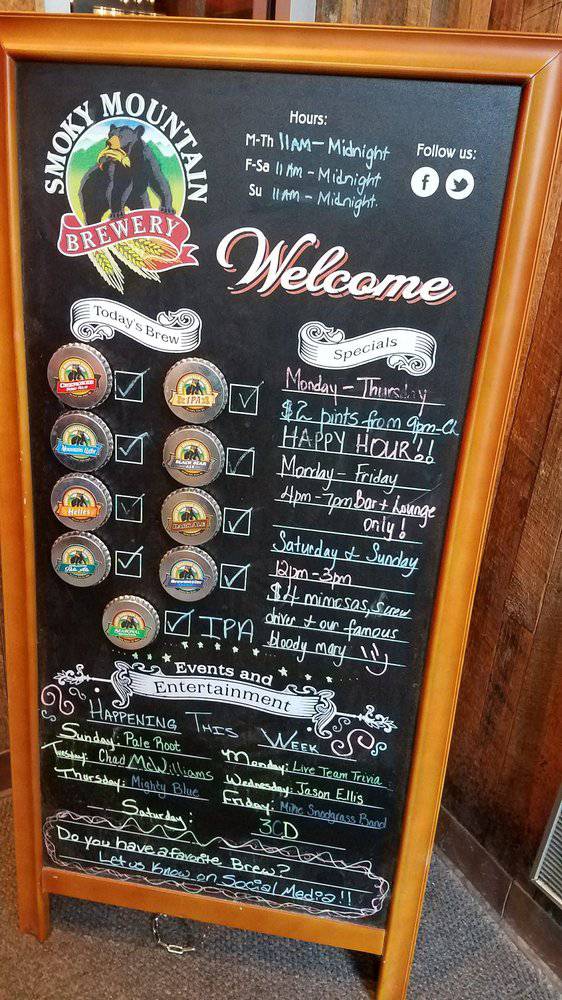 SMOKY MOUNTAIN
BREWERY
Hours:
M-Th 11AM - Midnight
F-Sa 11AM - Midnight
Su 11AM - Midnight.
Follow us:
Welcome
Today's Brew
Specials
IPA
BLACK BEAR
ALE
Helles
SEASONAL
IPA
Monday - Thursday
$2 pints from 9pm-CL
HAPPY HOUR!!
Monday - Friday
4pm - 7pm Bar + Lounge
only!
Saturday + Sunday
12pm - 3pm
$4 mimosas, screw
driver + our famous
bloody mary
Events and
Entertainment
HAPPENING THIS WEEK
Sunday: Pale Root
Monday: Live Team Trivia
Tuesday: Chad McWilliams
Wednesday: Jason Ellis
Thursday: Mighty Blue
Friday: Mike Snodgrass Band
Saturday: 3CD
Do you have a favorite Brew?
Let us know on Social Media!!